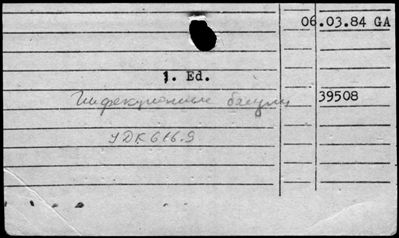 06.03.84 GA
1. Ed.
39508
УДК 616.9